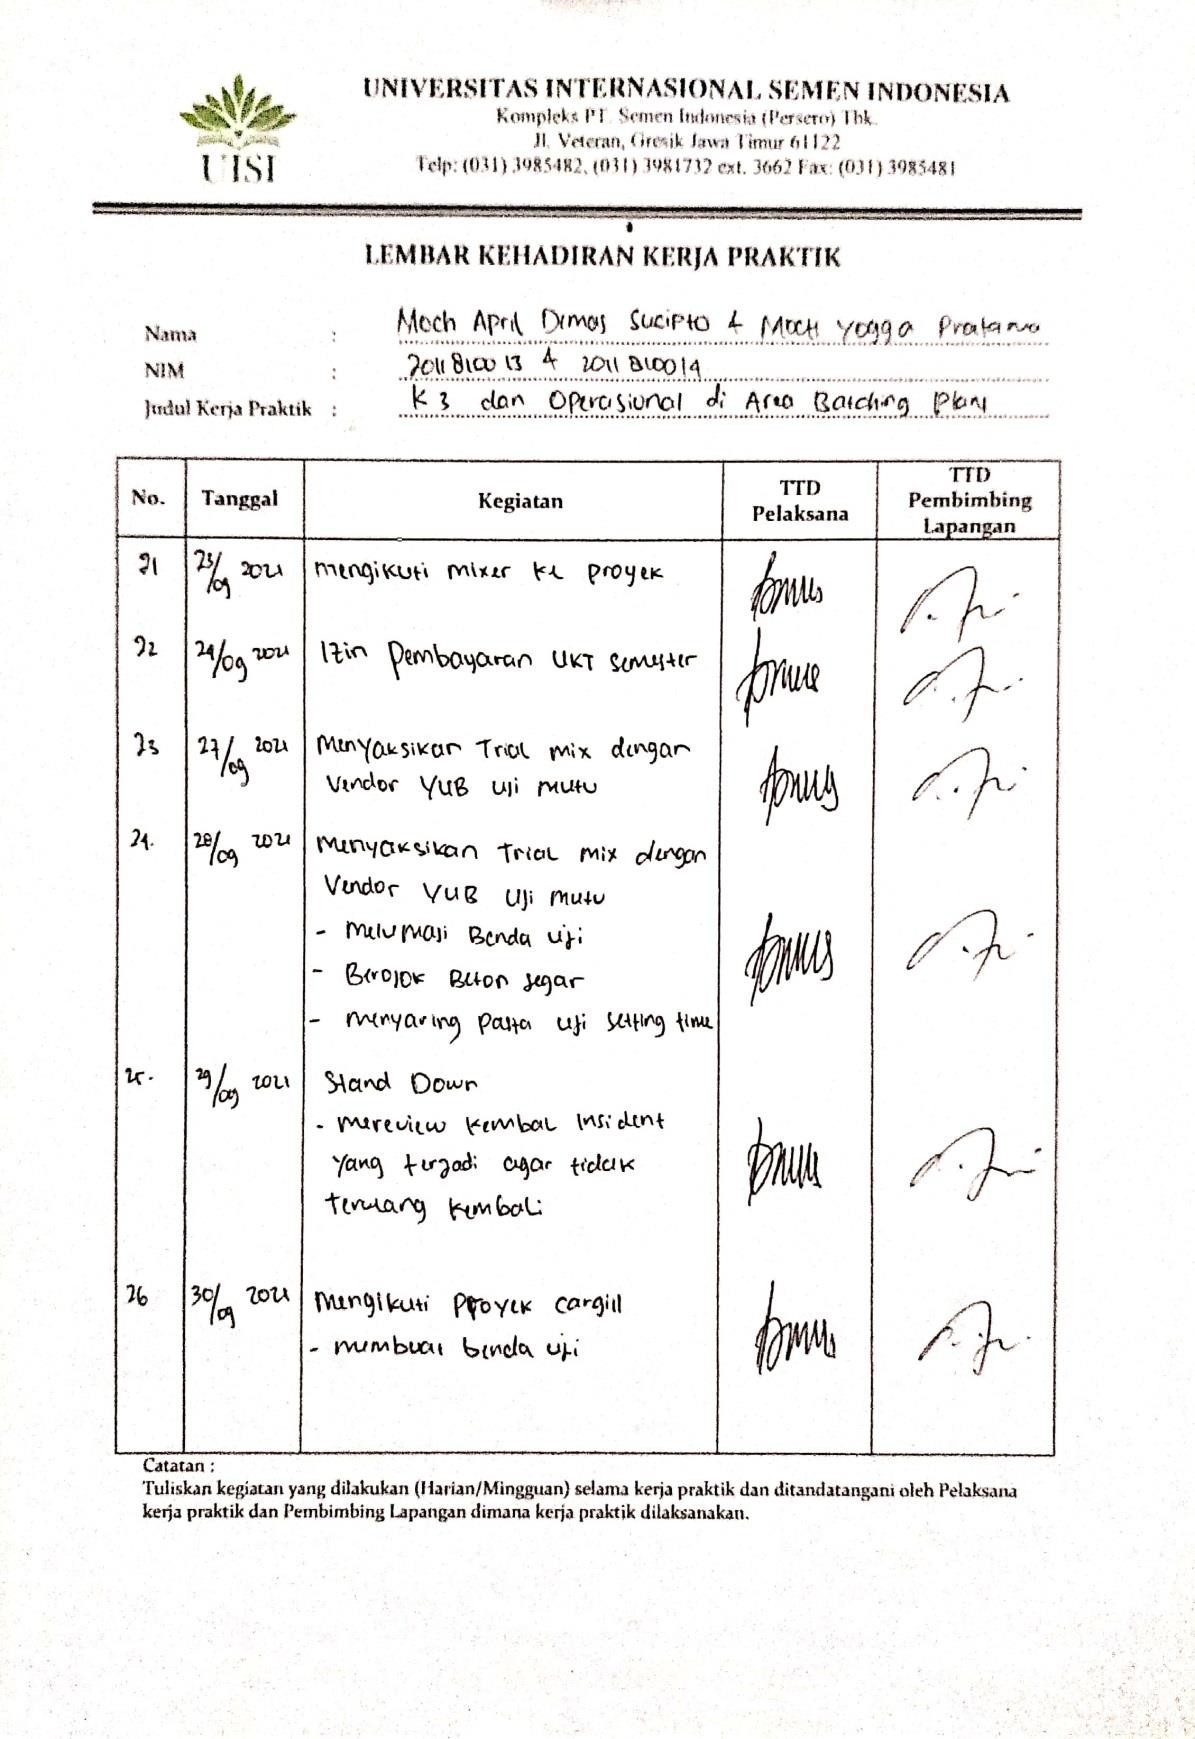 UISI
UNIVERSITAS INTERNASIONAL SEMEN INDONESIA
Kompleks PT. Semen Indonesia (Persero) Tbk.
Jl. Veteran, Gresik Jawa Timur 61122
Telp: (031) 3985482, (031) 3981732 ext. 3662 Fax: (031) 3985481
LEMBAR KEHADIRAN KERJA PRAKTIK
Nama : Moch April Dimas Sucipto & Moch Yogga Pratama
NIM : 2011810013 & 2011810014
Judul Kerja Praktik : K3 dan Operasional di Area Batching Plant
No. Tanggal Kegiatan TTD Pelaksana TTD Pembimbing Lapangan
21 23/09 2021 mengikuti mixer ke proyek
22 24/09 2021 Izin Pembayaran UKT semester
23 27/09 2021 Menyaksikan Trial mix dengan
Vendor YUB uji mutu
24. 28/09 2021 Menyaksikan Trial mix dengan
Vendor YUB Uji mutu
- Melumasi Benda uji
- Berojok Beton segar
- menyaring Pasta uji setting time
25. 29/09 2021 Stand Down
- mereview kembali Insident
yang terjadi agar tidak
terulang kembali
26 30/09 2021 Mengikuti Proyek cargill
- membuat benda uji
Catatan :
Tuliskan kegiatan yang dilakukan (Harian/Mingguan) selama kerja praktik dan ditandatangani oleh Pelaksana
kerja praktik dan Pembimbing Lapangan dimana kerja praktik dilaksanakan.